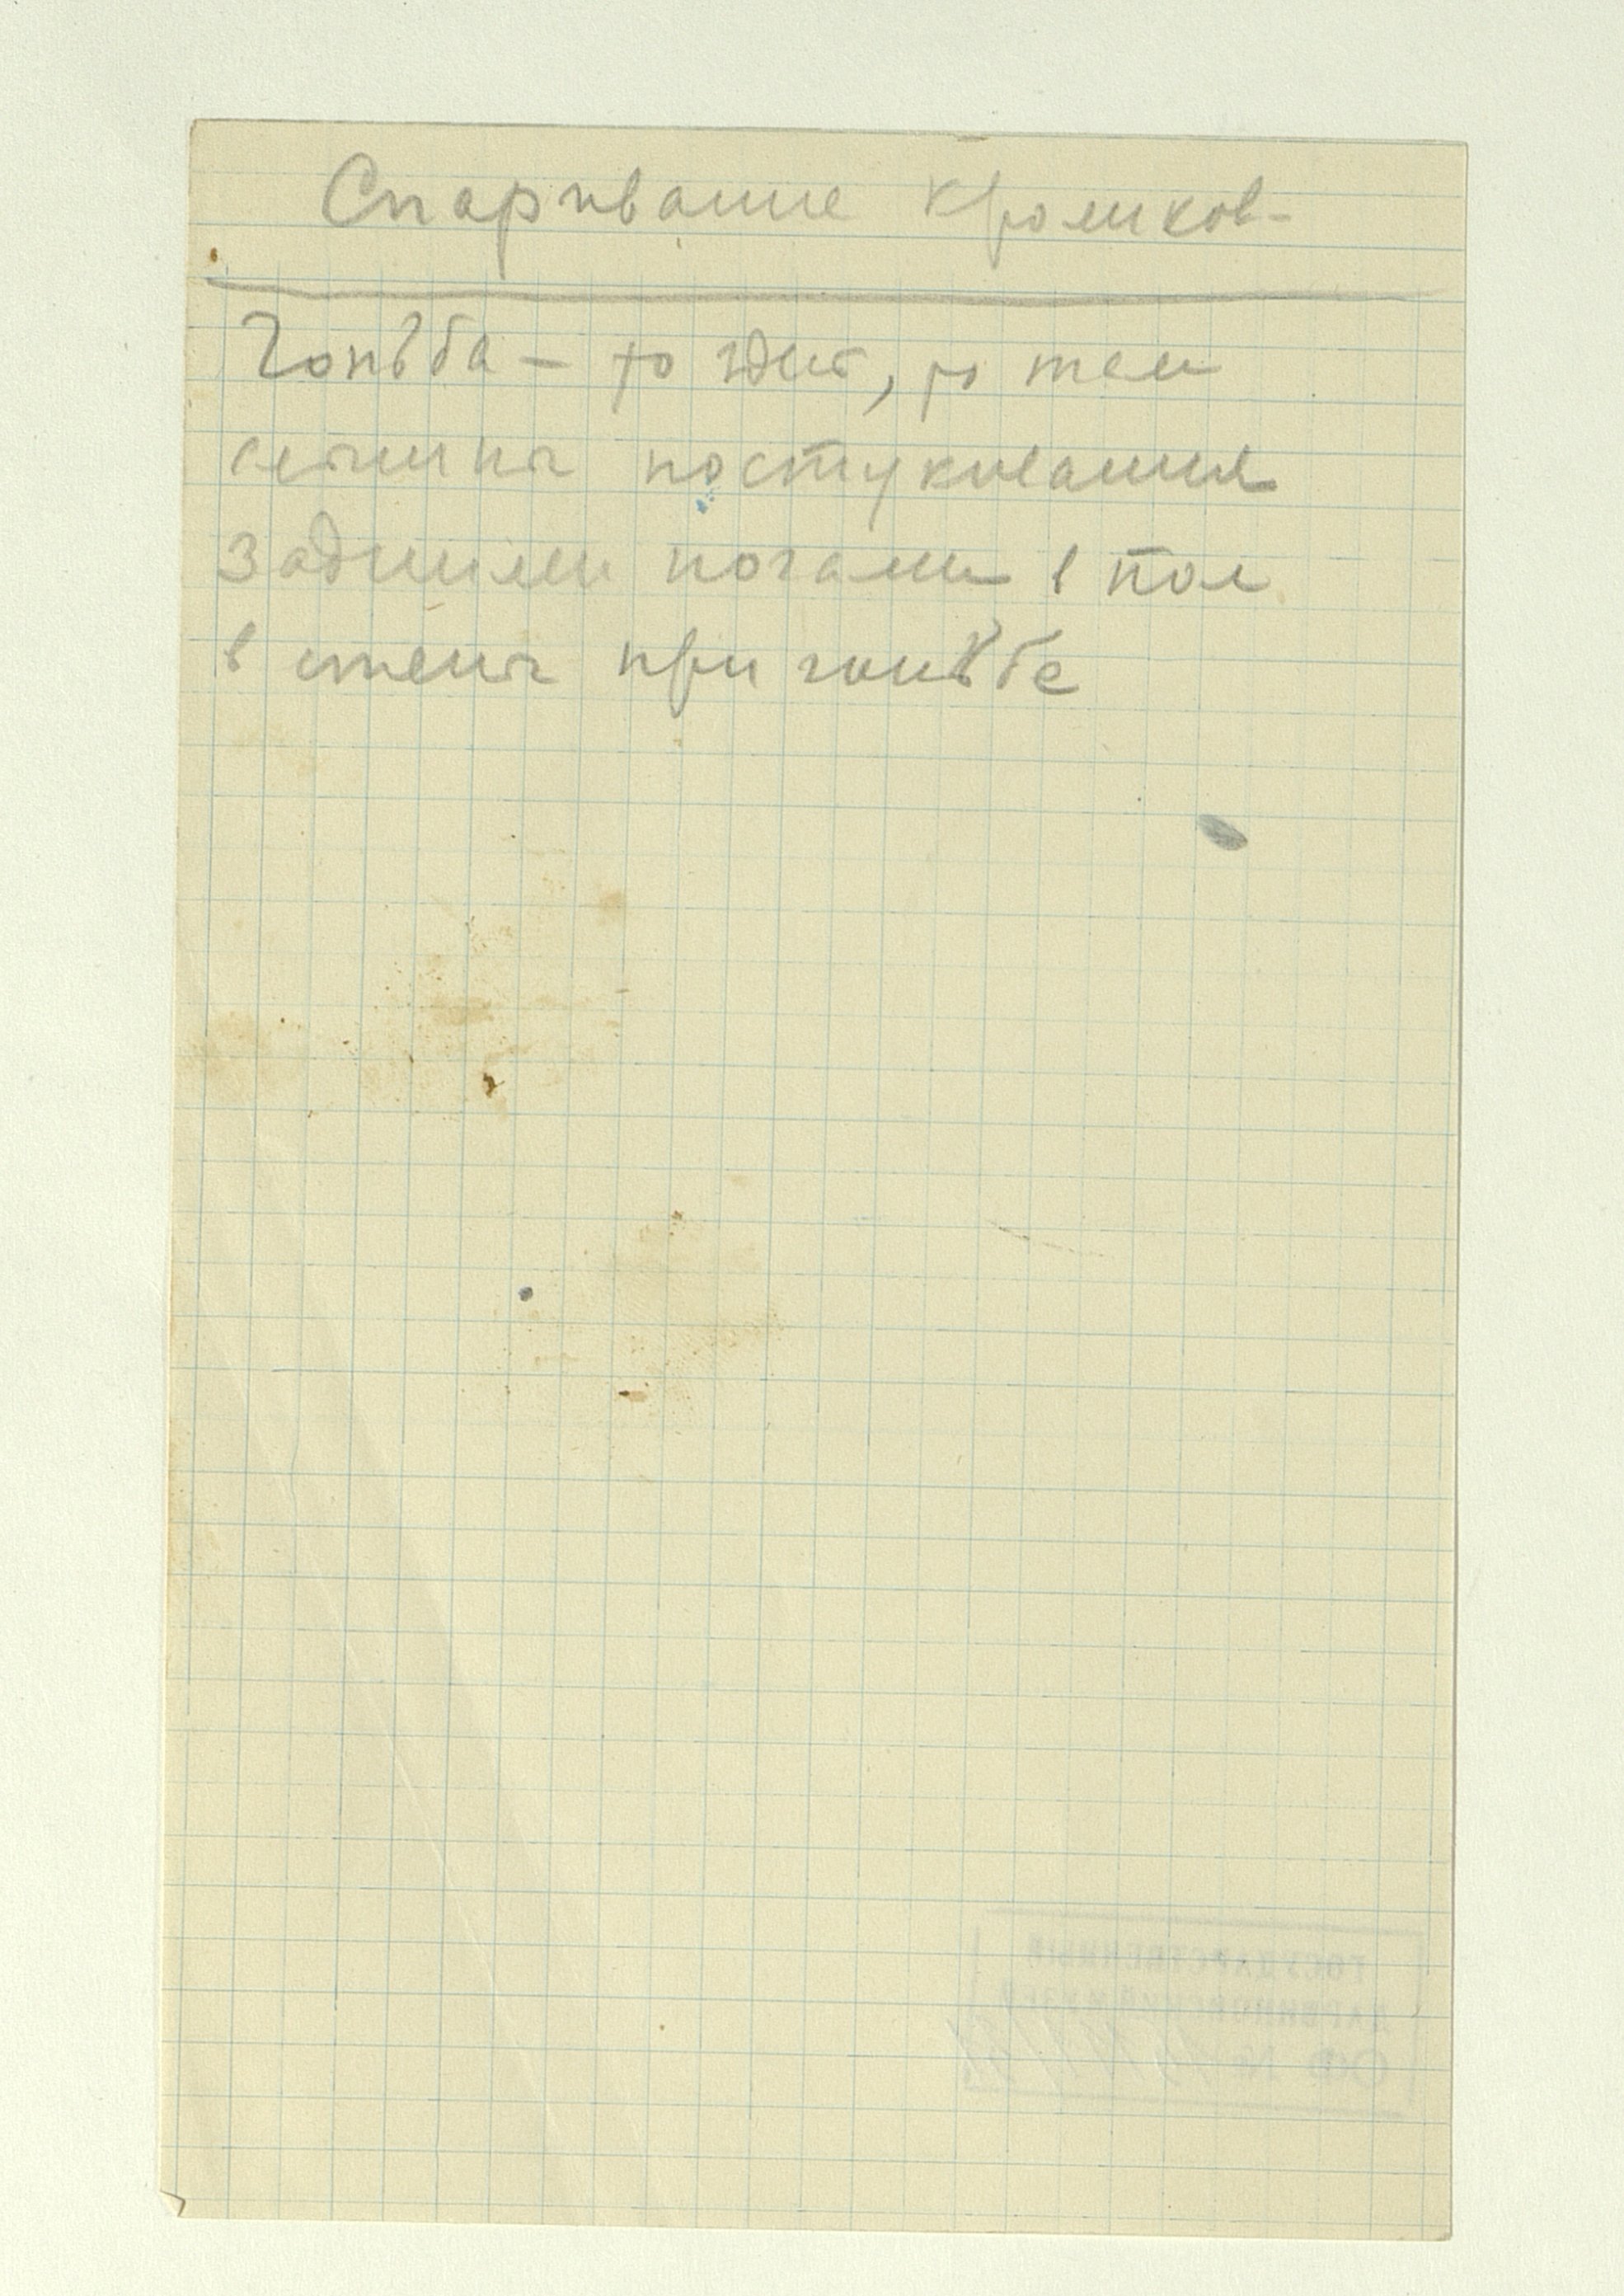 Спаривание кроликов-
Гоньба - то здесь, то там
слышны постукивания
задними ногами в пол
в стены при гоньбе
ГОСУДАРСТВЕННЫЙ
ДАРВИНОВСКИЙ МУЗЕЙ
ОФ №